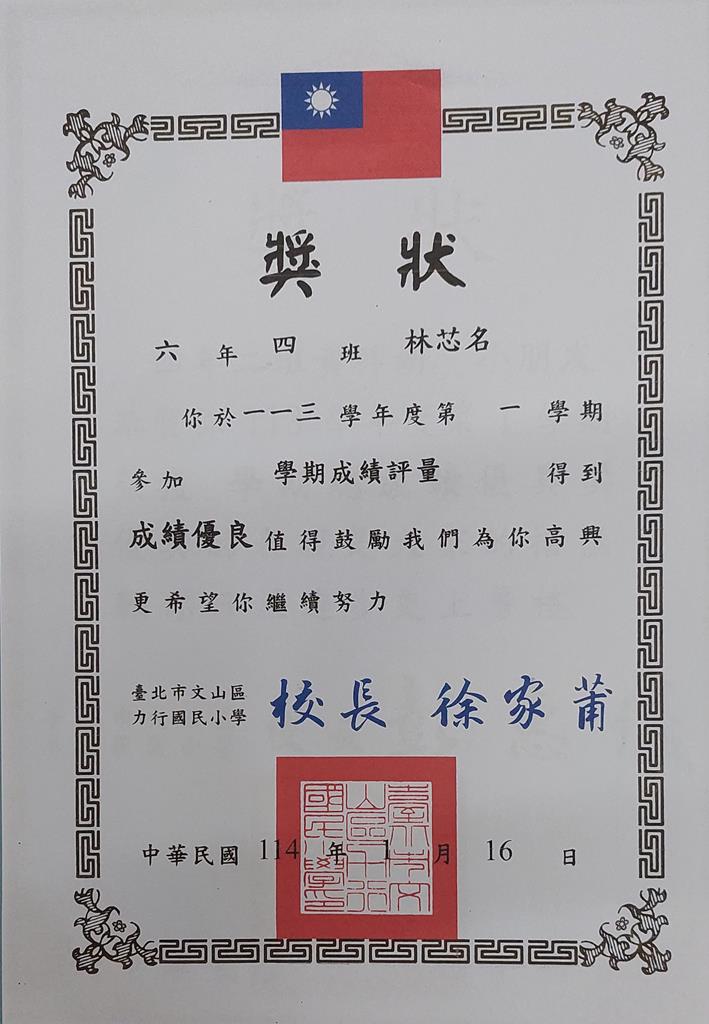 獎狀
六年四班 林芯名
你於一一三學年度第一學期
參加 學期成績評量 得到
成績優良值得鼓勵我們為你高興
更希望你繼續努力
臺北市文山區
力行國民小學
校長 徐家莆
臺北市文山區力行國民小學印
中華民國 114 年 1 月 16 日